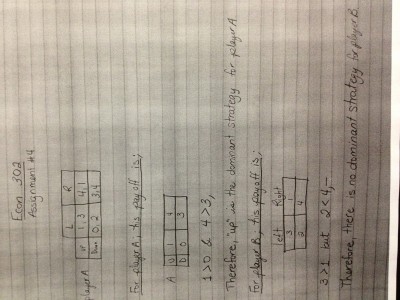 Econ 302
Assignment #4
L R
player A U 1, 3 4, 1
Down 0, 2 3, 4
For player A, his payoff is;
A
U 1 4
D 0 3
1 > 0 & 4 > 3,
Therefore, "up" is the dominant strategy for player A.
For player B, his payoff is;
Left Right
3 1
2 4
3 > 1 but 2 < 4,
Therefore, there is no dominant strategy for player B.